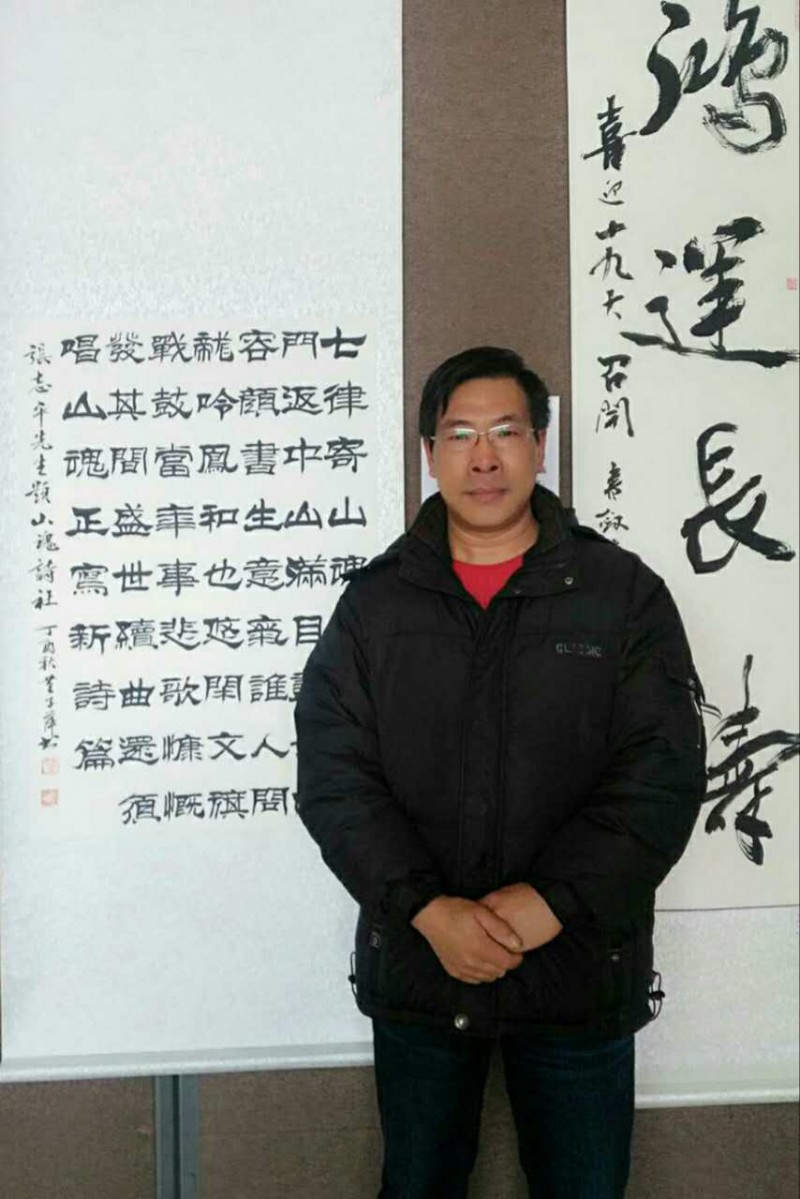 鴻運長壽
喜迎十九大召開
七律寄山魂
門返中山滿目
容顏書生意氣誰人
龍吟鳳和也悠閑文旗
戰鼓當年事悲歌慷慨
發其間盛世續曲還須
唱山魂正寫新詩篇
張志平先生題山魂詩社 丁酉秋
CLASSIC